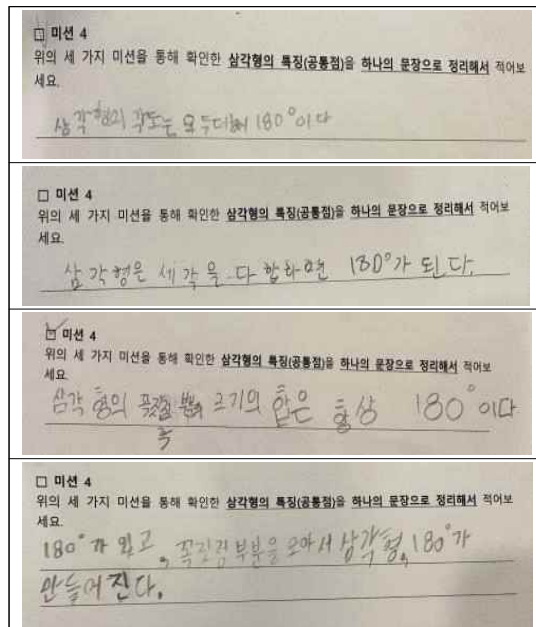 □ 미션 4
위의 세 가지 미션을 통해 확인한 삼각형의 특징(공통점)을 하나의 문장으로 정리해서 적어보
세요.
삼각형의 각도는 모두더해 180°이다
□ 미션 4
위의 세 가지 미션을 통해 확인한 삼각형의 특징(공통점)을 하나의 문장으로 정리해서 적어보
세요.
삼각형은 세 각을 다 합하면 180°가 된다.
□ 미션 4
위의 세 가지 미션을 통해 확인한 삼각형의 특징(공통점)을 하나의 문장으로 정리해서 적어보
세요
삼각형의 크기의 합은 항상 180°이다
□ 미션 4
위의 세 가지 미션을 통해 확인한 삼각형의 특징(공통점)을 하나의 문장으로 정리해서 적어보
세요.
180°가 있고, 꼭짓점 부분을 모아서 삼각형, 180°가
만들어진다.